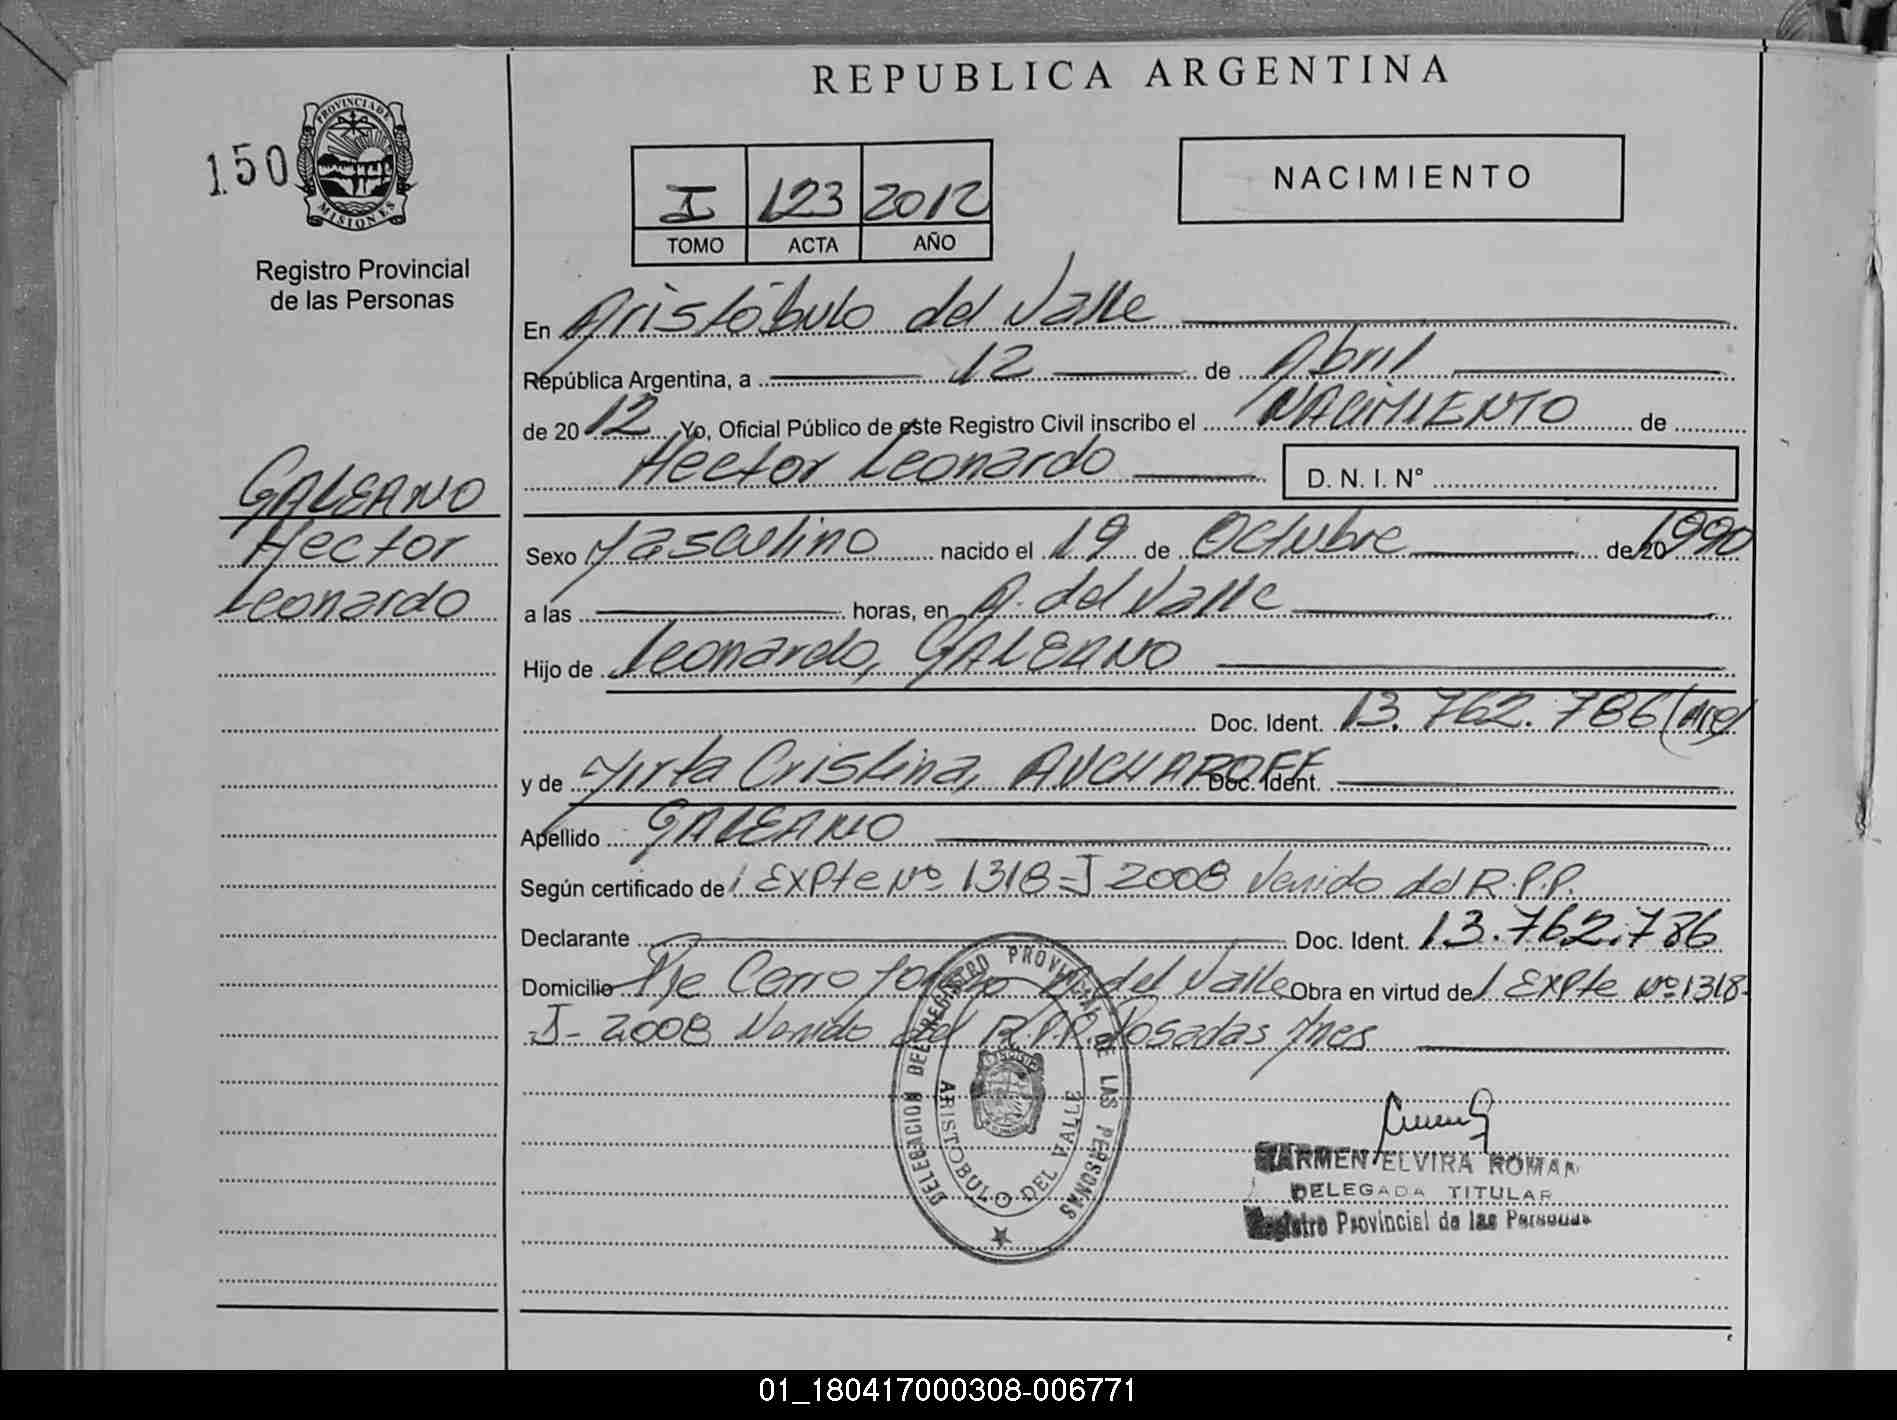 REPUBLICA ARGENTINA
150
PROVINCIA DE MISIONES
Registro Provincial
de las Personas
I 123 2012
TOMO ACTA AÑO
NACIMIENTO
En Aristóbulo del Valle
República Argentina, a 12 de Abril
de 2012 Yo, Oficial Público de este Registro Civil inscribo el NACIMIENTO de
Hector Leonardo D. N. I. N°
GALEANO
Hector
Leonardo
Sexo Masculino nacido el 19 de Octubre de 20 1990
a las horas, en A. del Valle
Hijo de Leonardo, GALEANO
Doc. Ident. 13.762.786
y de Mirta Cristina, AUCHAROFF Doc. Ident.
Apellido GALEANO
Según certificado de 1 EXPte Nº 1318-I 2008 Venido del R.P.P.
Declarante Doc. Ident. 13.762.786
Domicilio Pje Cerro A. del Valle Obra en virtud de 1 EXPte Nº 1318-
-I- 2008 Venido del R.P.P. Posadas Mnes
DELEGACION DEL REGISTRO PROVINCIAL DE LAS PERSONAS
ARISTOBULO DEL VALLE
CARMEN ELVIRA ROMAN
DELEGADA TITULAR
Registro Provincial de las Personas
01_180417000308-006771